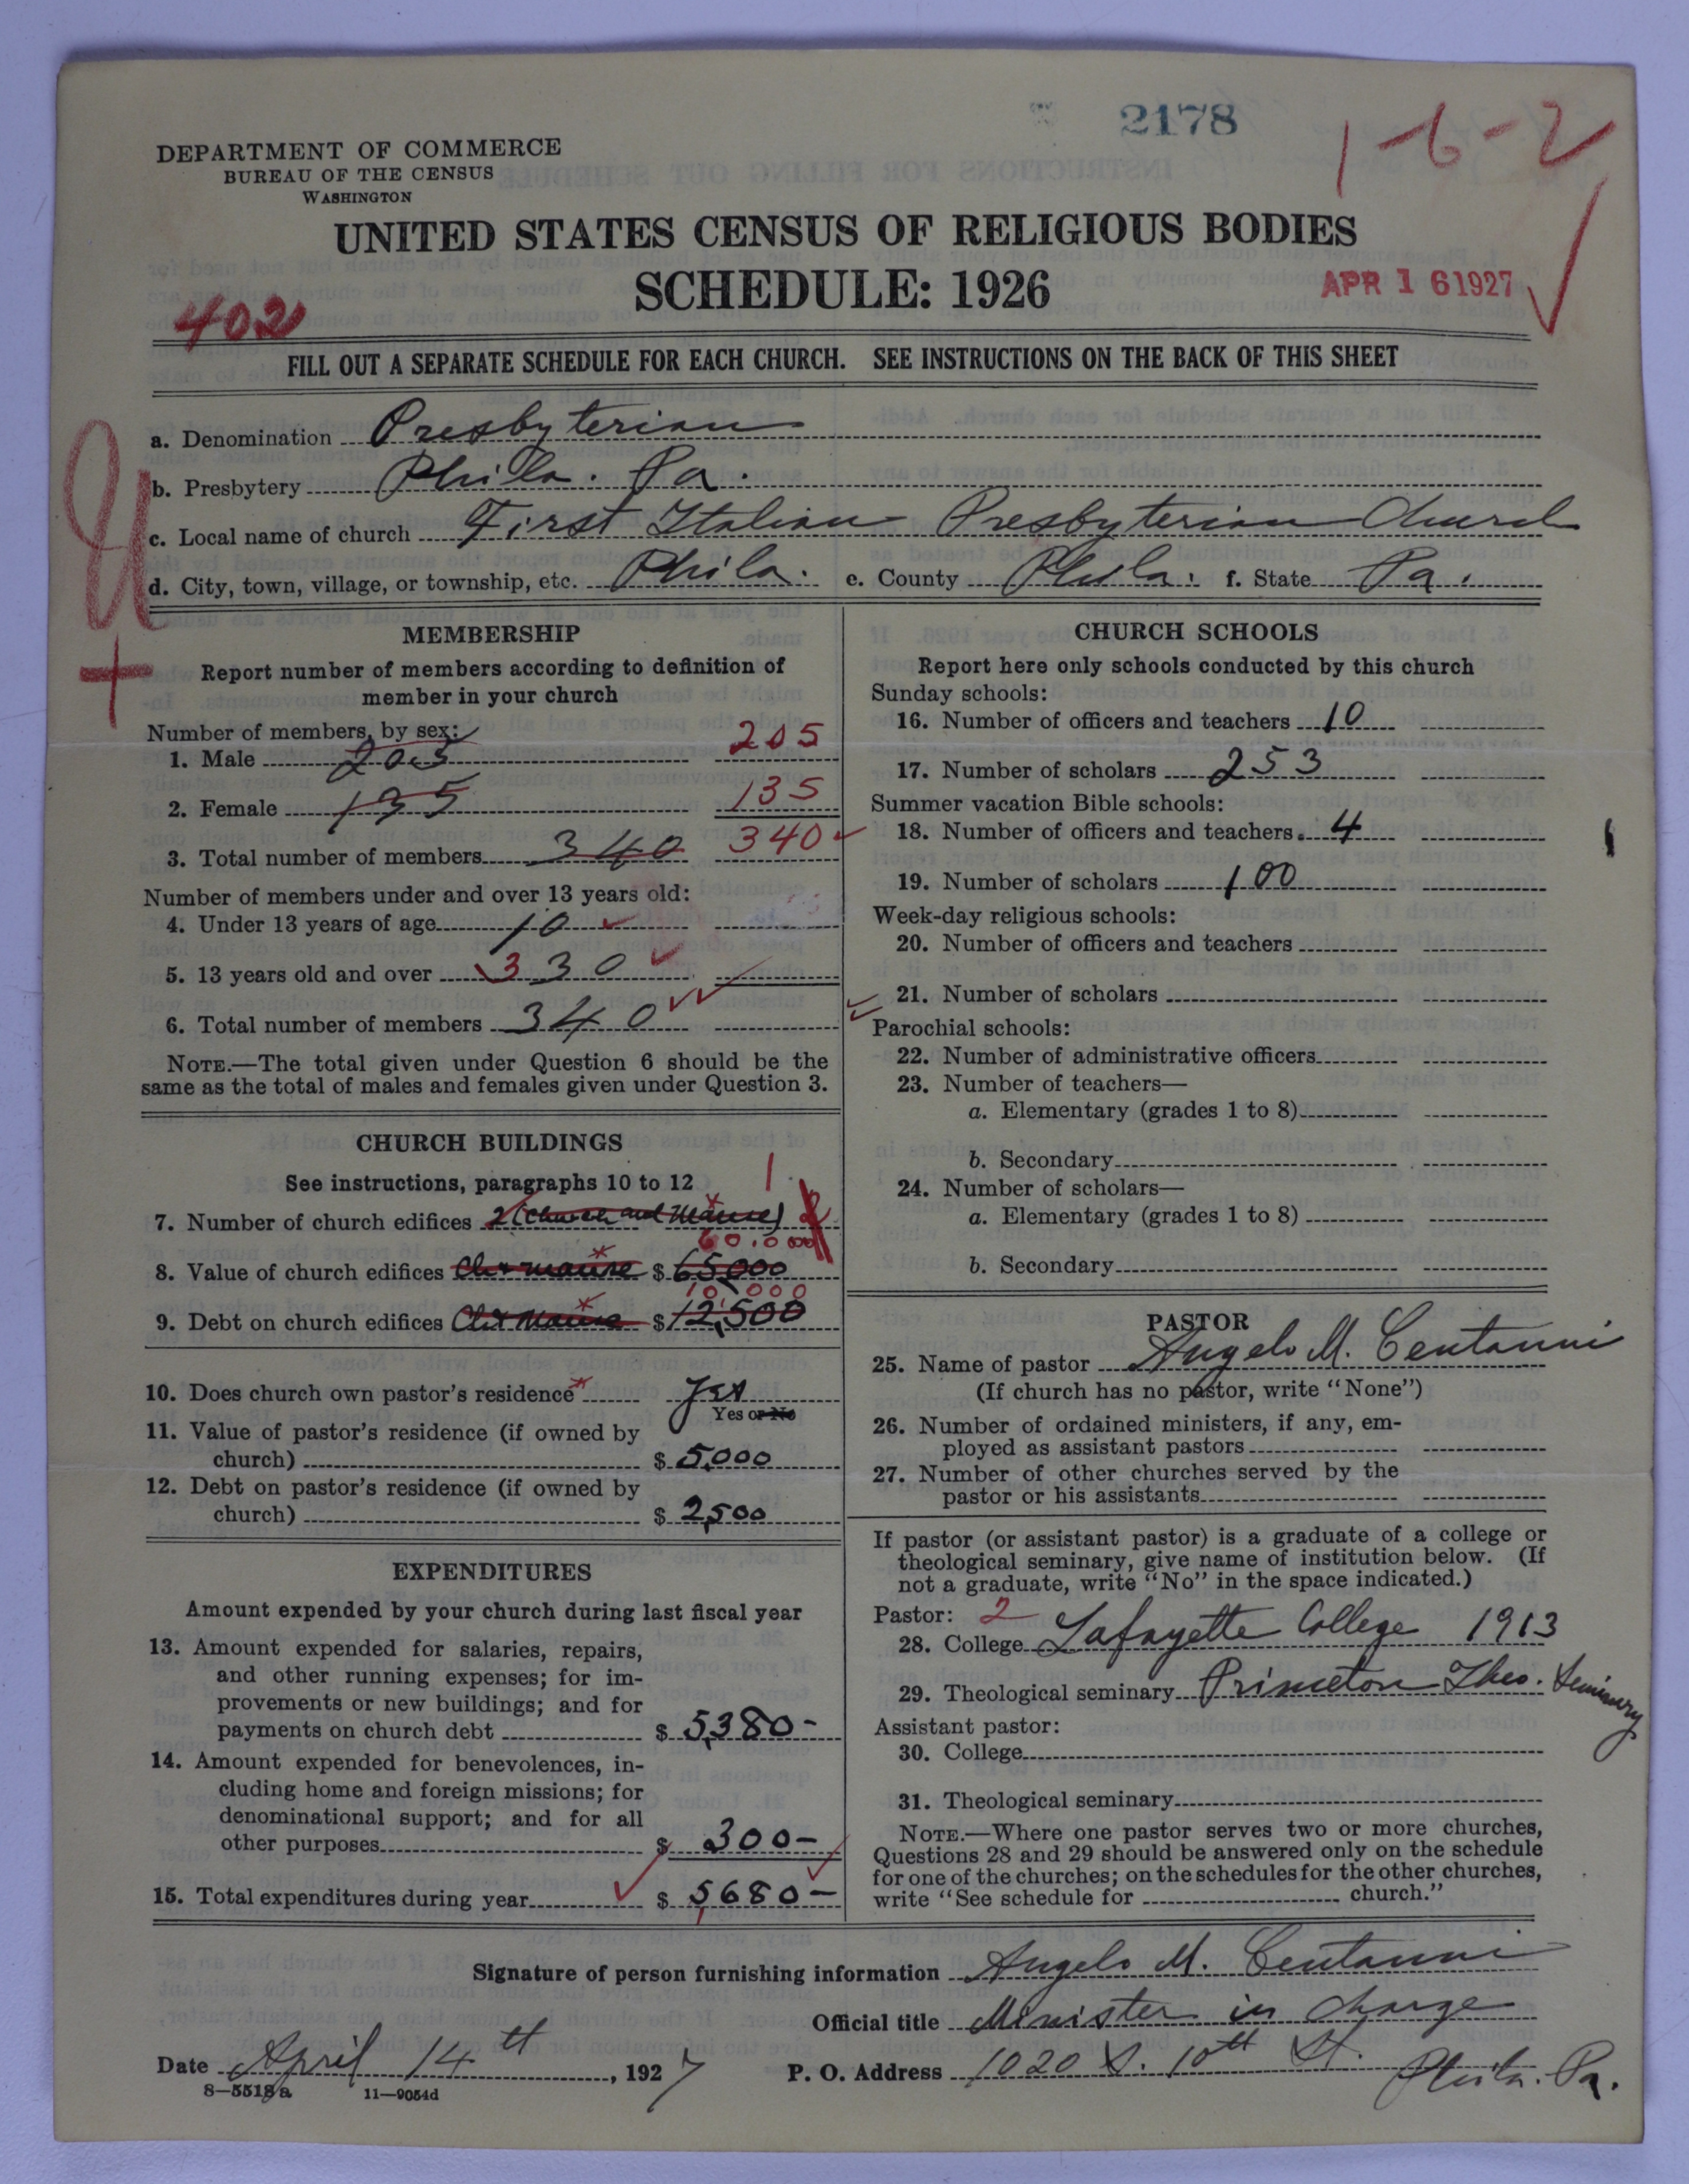 2178
1-6-2
DEPARTMENT OF COMMERCE
BUREAU OF THE CENSUS
WASHINGTON
UNITED STATES CENSUS OF RELIGIOUS BODIES
SCHEDULE: 1926
APR 16 1927
402
FILL OUT A SEPARATE SCHEDULE FOR EACH CHURCH. SEE INSTRUCTIONS ON THE BACK OF THIS SHEET
a. Denomination Presbyterian
b. Presbytery Phila. Pa.
c. Local name of church First Italian Presbyterian Church
d. City, town, village, or township, etc. Phila. e. County Phila. f. State Pa.
MEMBERSHIP
Report number of members according to definition of
member in your church
Number of members, by sex:
1. Male 205 205
2. Female 135 135
3. Total number of members 340 340
Number of members under and over 13 years old:
4. Under 13 years of age 10
5. 13 years old and over 330
6. Total number of members 340
NOTE.—The total given under Question 6 should be the
same as the total of males and females given under Question 3.
CHURCH BUILDINGS
See instructions, paragraphs 10 to 12
1
7. Number of church edifices 2 (Church and Manse)
60,000
8. Value of church edifices Ch + manse $ 65,000
10,000
9. Debt on church edifices Ch + Manse $ 12,500
10. Does church own pastor's residence Yes
Yes or No
11. Value of pastor's residence (if owned by
church) $ 5,000
12. Debt on pastor's residence (if owned by
church) $ 2,500
EXPENDITURES
Amount expended by your church during last fiscal year
13. Amount expended for salaries, repairs,
and other running expenses; for im-
provements or new buildings; and for
payments on church debt $ 5,380-
14. Amount expended for benevolences, in-
cluding home and foreign missions; for
denominational support; and for all
other purposes $ 300-
15. Total expenditures during year $ 5,680-
CHURCH SCHOOLS
Report here only schools conducted by this church
Sunday schools:
16. Number of officers and teachers 10
17. Number of scholars 253
Summer vacation Bible schools:
18. Number of officers and teachers 4
19. Number of scholars 100
Week-day religious schools:
20. Number of officers and teachers
21. Number of scholars
Parochial schools:
22. Number of administrative officers
23. Number of teachers—
a. Elementary (grades 1 to 8)
b. Secondary
24. Number of scholars—
a. Elementary (grades 1 to 8)
b. Secondary
PASTOR
25. Name of pastor Angelo M. Centanni
(If church has no pastor, write "None")
26. Number of ordained ministers, if any, em-
ployed as assistant pastors
27. Number of other churches served by the
pastor or his assistants
If pastor (or assistant pastor) is a graduate of a college or
theological seminary, give name of institution below. (If
not a graduate, write "No" in the space indicated.)
Pastor: 2
28. College Lafayette College 1913
29. Theological seminary Princeton Theo. Seminary
Assistant pastor:
30. College
31. Theological seminary
NOTE.—Where one pastor serves two or more churches,
Questions 28 and 29 should be answered only on the schedule
for one of the churches; on the schedules for the other churches,
write "See schedule for church."
Signature of person furnishing information Angelo M. Centanni
Official title Minister in charge
Date April 14th, 1927 P. O. Address 1020 S. 10th St. Phila. Pa.
8—5518a 11—9054d